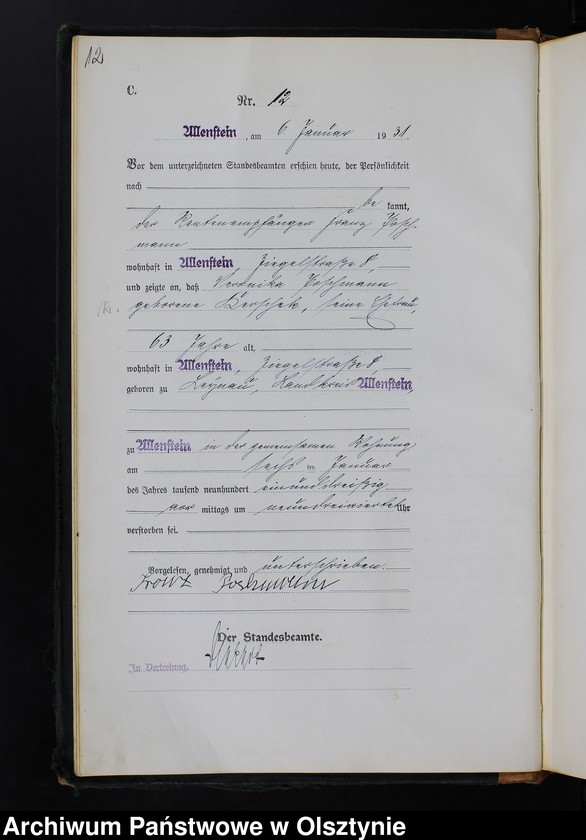 12
C.
Nr. 12
Allenstein, am 6 Januar 1931.
Vor dem unterzeichneten Standesbeamten erschien heute, der Persönlichkeit
nach
be kannt,
der Rentenempfänger Franz Posch-
mann
wohnhaft in Allenstein, Ziegelstraße 8,
und zeigte an, daß Veronika Poschmann
geborene Kerschek, seine Ehefrau,
63 Jahre alt,
wohnhaft in Allenstein, Ziegelstraße 8,
geboren zu Leynau, Landkreis Allenstein,
zu Allenstein in der gemeinsamen Wohnung
am sechs ten Januar
des Jahres tausend neunhundert einunddreißig
vor mittags um neundreiviertel Uhr
verstorben sei.
Vorgelesen, genehmigt und unterschrieben.
Franz Poschmann
Der Standesbeamte.
In Vertretung.
Archiwum Państwowe w Olsztynie